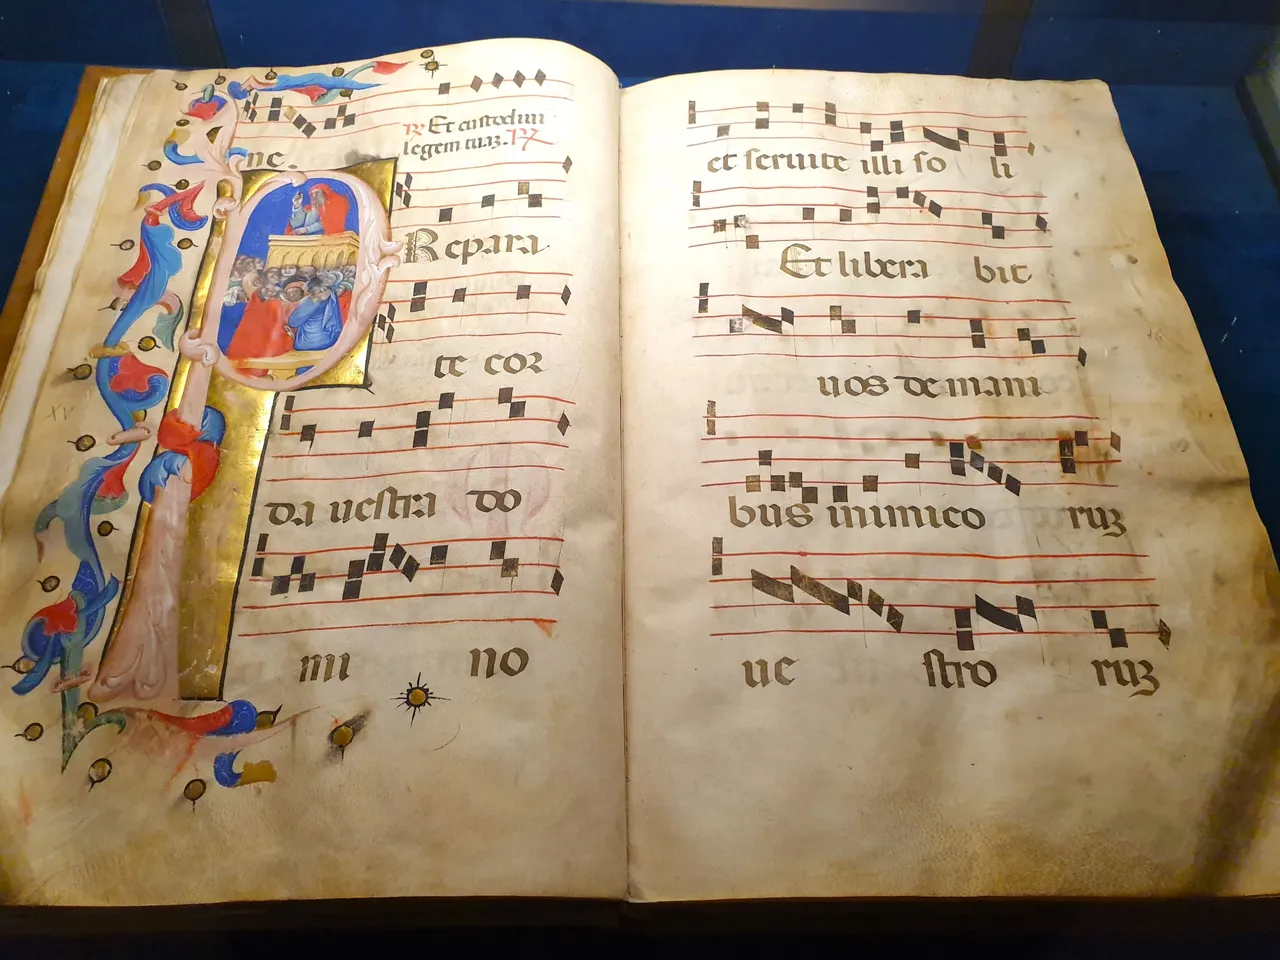 ne.
℟ Et custodim
legem tuaz. ℟
PRepara
te cor
da uestra do
mi no
et seruite illi so li
Et libera bit
uos de mani
bus inimico ruz
ue stro ruz